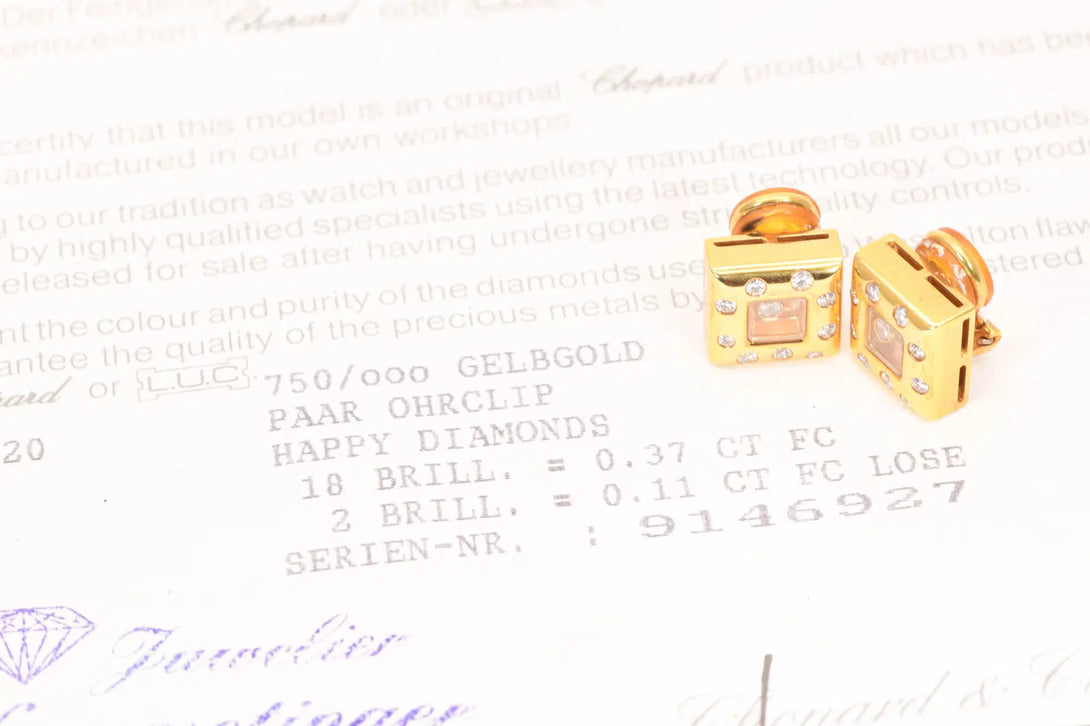 Der
kennzeichen Chopard oder
certify that this model is an original Chopard product which has
manufactured in our own workshops.
to our tradition as watch and jewellery manufacturers all our models
by highly qualified specialists using the latest technology. Our
eleased for sale after having undergone quality controls.
nt the colour and purity of the diamonds
antee the quality of the precious metals by
pard or L.U.C
20
750/000 GELBGOLD
PAAR OHRCLIP
HAPPY DIAMONDS
18 BRILL. = 0.37 CT FC
2 BRILL. = 0.11 CT FC LOSE
SERIEN-NR. : 9146927
Juwelier
Chopard & C